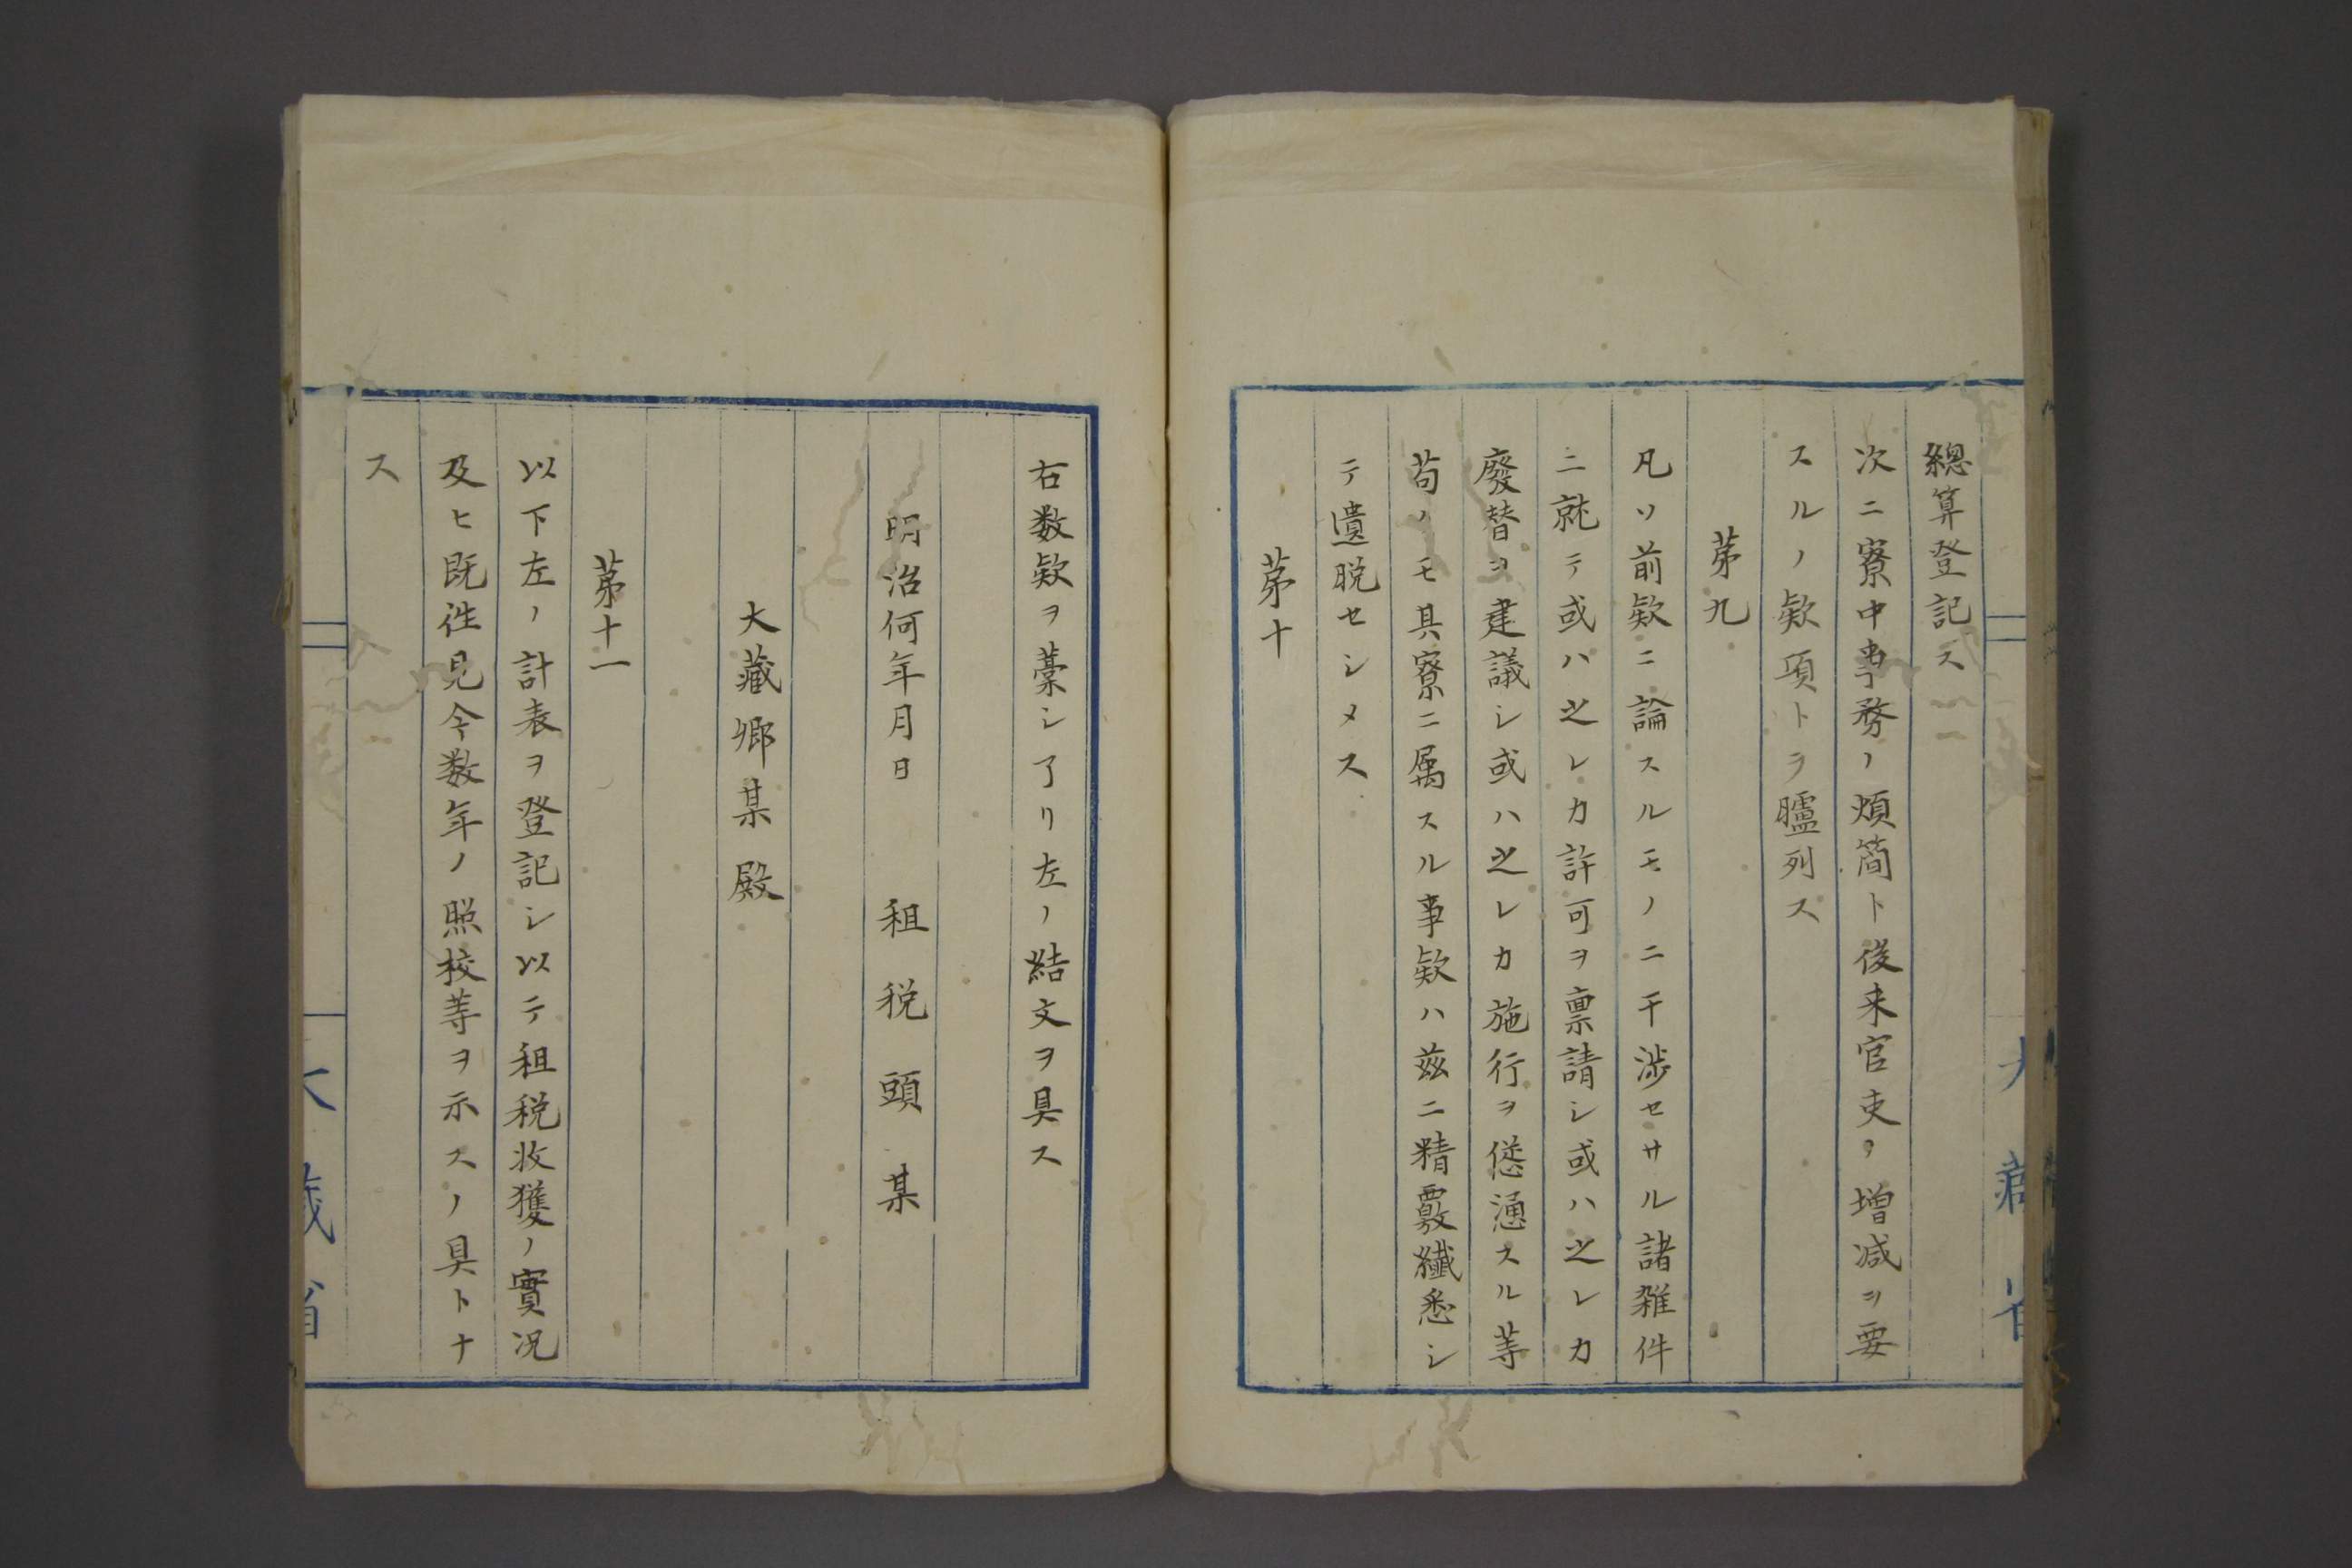 總算登記ス
次ニ寮中事務ノ煩簡ト後来官吏ヲ増减ヲ要
スルノ欵項トヲ臚列ス
苐九
凡ソ前欵ニ論スルモノニ干渉セサル諸雑件
ニ就テ或ハ之レカ許可ヲ禀請シ或ハ之レカ
廢替ヲ建議シ或ハ之レカ施行ヲ慫慂スル等
苟ノモ其寮ニ属スル事欵ハ兹ニ精覈纎悉シ
テ遺脱セシメス
苐十
大藏省
右数欵ヲ藁シ了リ左ノ結文ヲ具ス
明治何年月日 租税頭某
大藏卿某殿
苐十一
以下左ノ計表ヲ登記シ以テ租税收獲ノ實况
及ヒ既徃見今数年ノ照校等ヲ示スノ具トナ
ス
大藏省